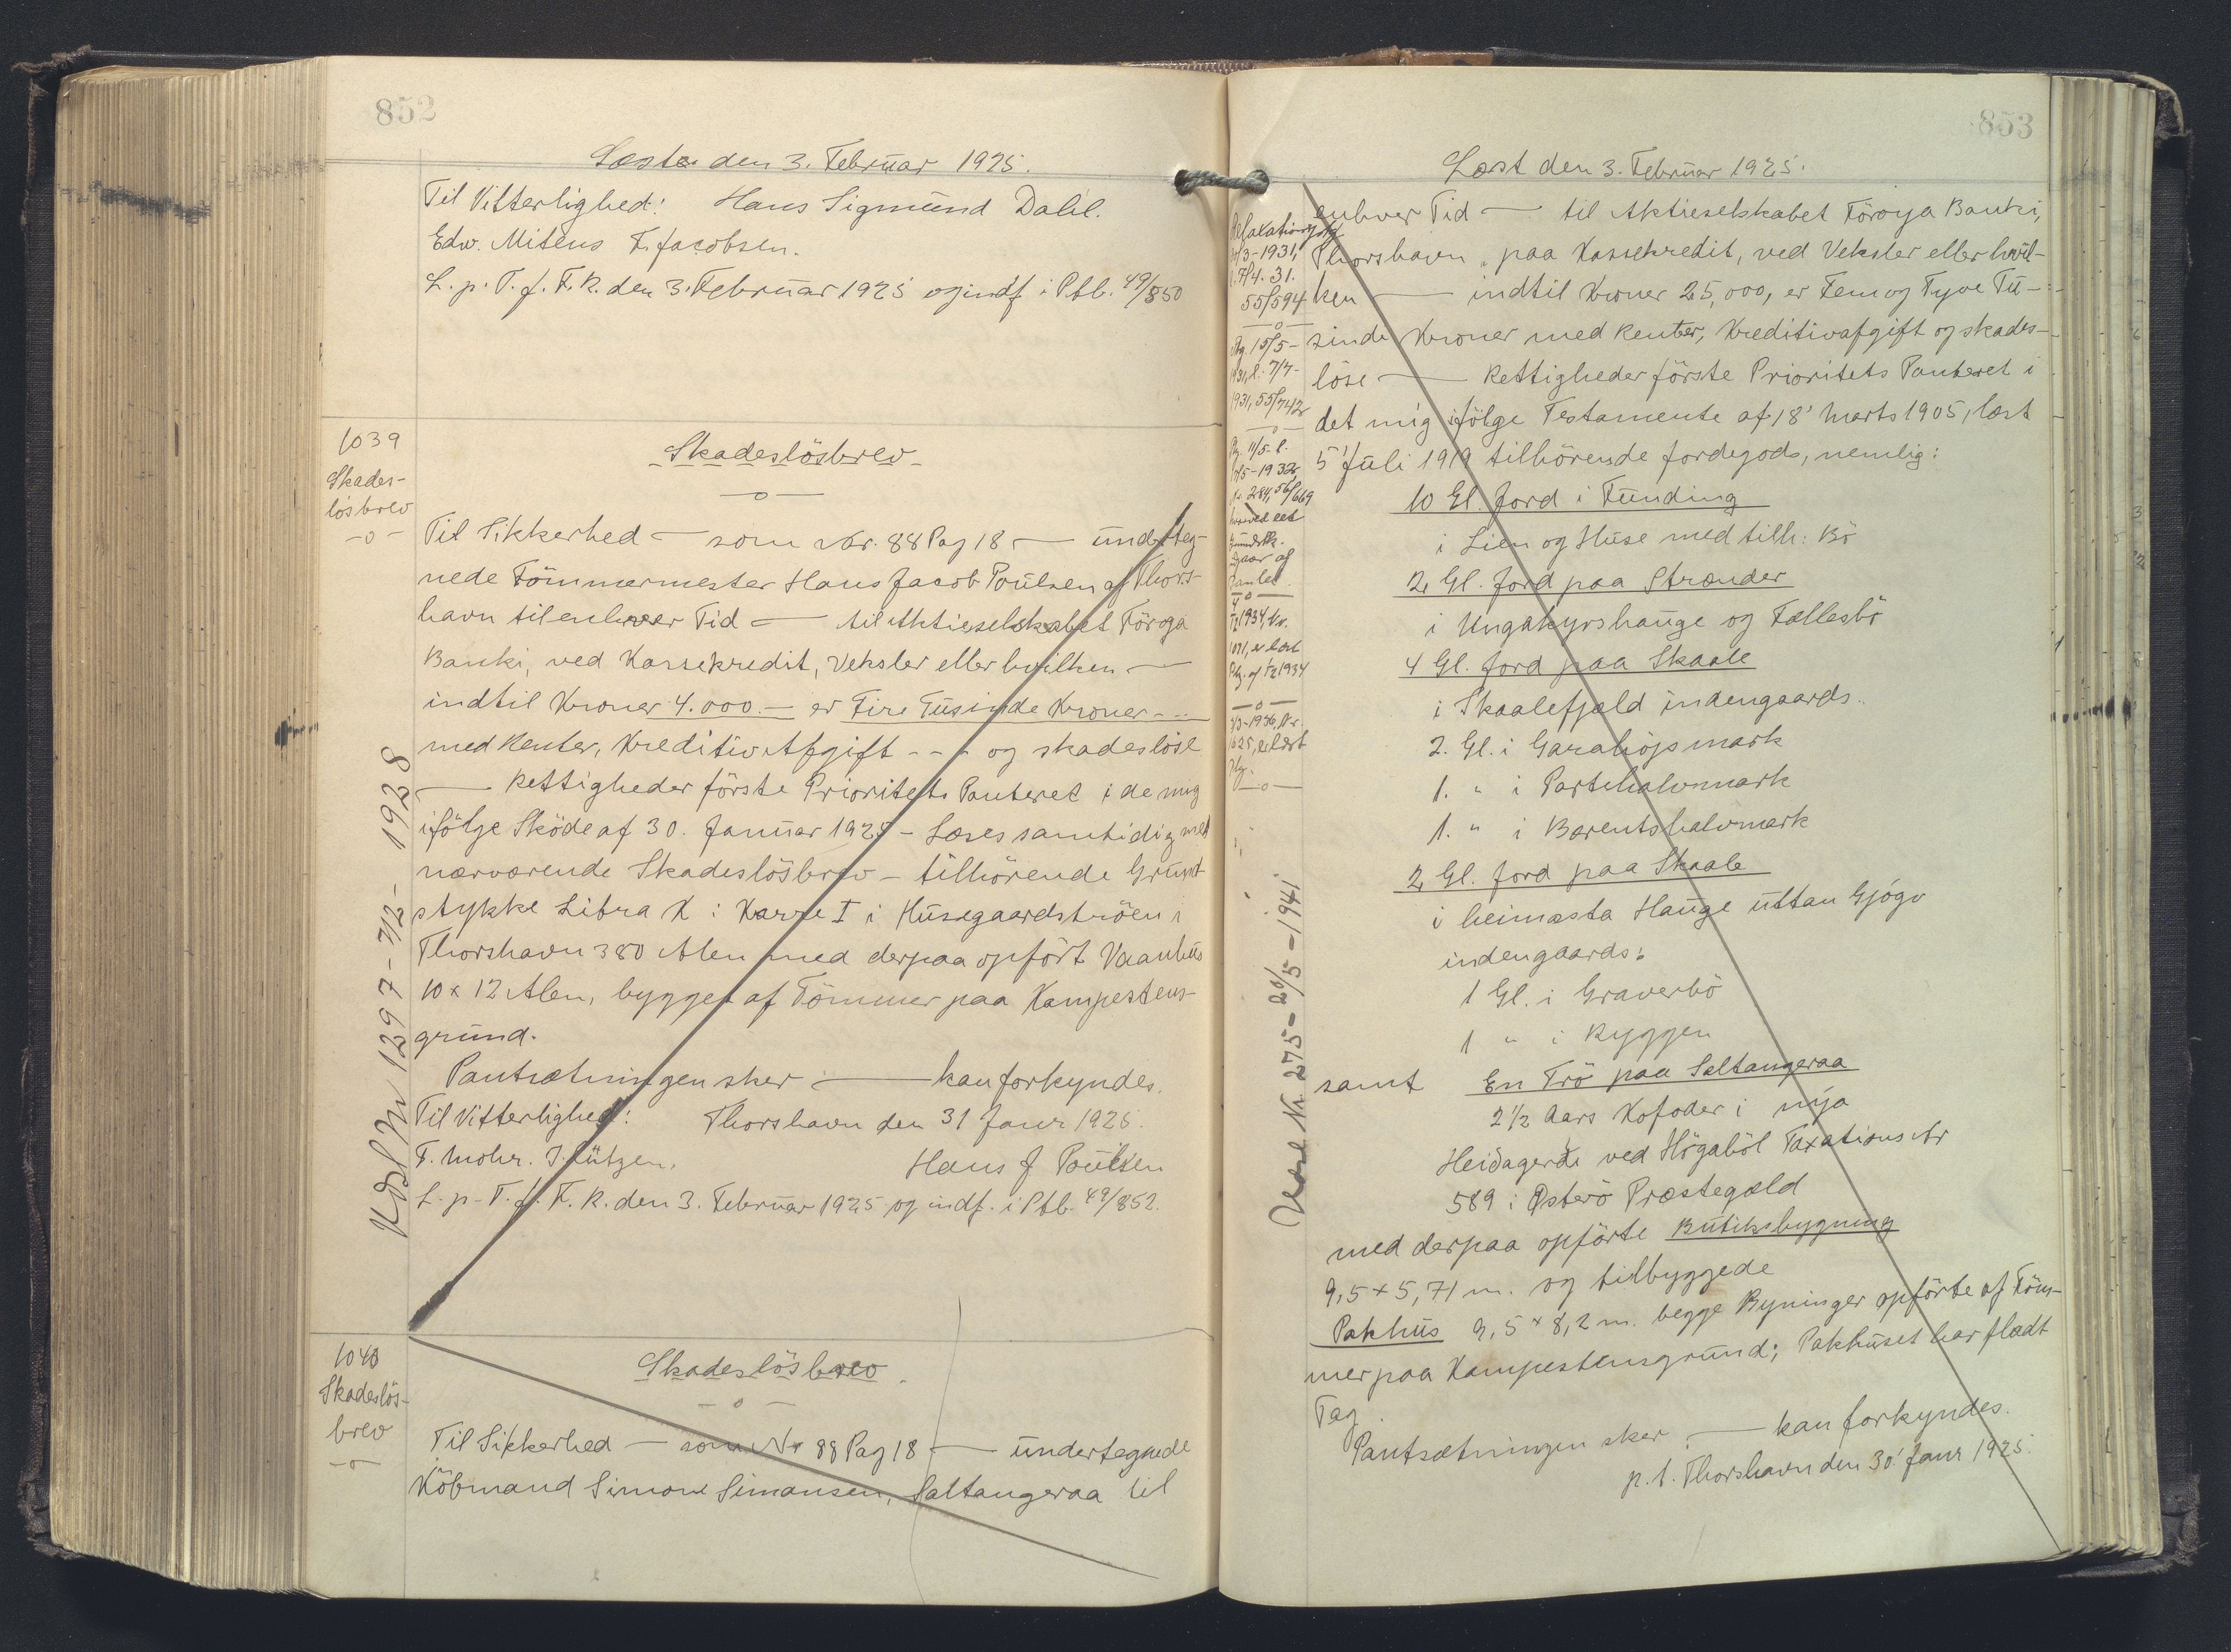 852
Læste den 3. Februar 1925.
Til Vitterlighed: Hans Sigmund Dahl.
Edw. Mitens F. Jacobsen.
L. p. T. f. F. R. den 3. Februar 1925 og indf i Ptb. 49/850
1039
Skades-
lösbrev
-o-
Skadeslösbrev
-o-
Til Sikkerhed — som Nr. 88 Pag 18 — underteg-
nede Tömmermester Hans Jacob Poulsen af Thors-
havn til enhver Tid — til Aktieselskabet Föroya
Banki, ved Kassekredit, Veksler eller hvilken —
indtil Kroner 4.000.— er Fire Tusinde Kroner - --
med Renter, Kreditiv Afgift - - - og skadeslöse
— Rettigheder förste Prioritets Panteret i de mig
ifölge Sköde af 30. Januar 1925 - Læses samtidig med
nærværende Skadeslösbrev - tilhörende Grund-
stykke Litra K i Karre I i Husegaardströen i
Thorshavn 380 Alen med derpaa opfört Vaanhus
10 x 12 Alen, bygget af Tömmer paa Kampestens-
grund.
Pantsætningen sker — kan forkyndes.
Til Vitterlighed: Thorshavn den 31 Janr 1925.
F. Mohr. J. Lützen. Hans J Poulsen
L. p. T. f. F. R. den 3. Februar 1925 og indf. i Ptb. 49/852.
Kvsl Nr 1397 - 7/12 - 1928
1040
Skadeslös-
brev
-o-
Skadeslösbrev.
- o -
Til Sikkerhed — som Nr 88 Pag 18 — undertegnede
Köbmand Simon Simonsen, Saltangeraa til
853
Læst den 3. Februar 1925.
enhver Tid — til Aktieselskabet Föroya Banki,
Thorshavn, paa Kassekredit, ved Veksler eller hvil-
ken — indtil Kroner 25,000, er Fem og Tyve Tu-
sinde Kroner med Renter, Kreditivafgift og skades-
löse — Rettigheder förste Prioritets Panteret i
det mig ifölge Testamente af 18' Marts 1905, læst
5' Juli 1919 tilhörende Jordegods, nemlig:
10 Gl. Jord i Funding
i Lien og Huse med tilh: Bö
2 Gl. Jord paa Strænder
i Ungakyrshauge og Fællesbö
4 Gl. Jord paa Skaale
i Skaalefjæld indengaards.
2. Gl. i Garahöjsmark
1. " i Partshalvmark
1. " i Barentshalvmark
2 Gl. Jord paa Skaale
i heimasta Hauge uttan Gjógv
indengaards:
1 Gl. i Graverbö
1 " i Ryggen
samt En Trö paa Saltangeraa
2 1/2 Aars Kofoder i nýja
Heiðagerði ved Högaból Taxations Nr
589 i Østerö Præstegæld
med derpaa opförte Butiksbygning
9,5 x 5,71 m. og tilbyggede
Pakhus 9,5 x 8,2 m. begge Byninger opförte af Töm-
mer paa Kampestensgrund; Pakhuset har fladt
Tag.
Pantsætningen sker — kan forkyndes.
p. t. Thorshavn den 30' Janr 1925.
/3-1931,
l. 7/4. 31.
55/594
-o-
Pg. 15/5-
1931, l. 7/7-
1931, 55/742
-o-
Pg. 11/5 l.
/5-1932
Nr. 284, 56/669
-o-
1934, Nr.
1071, er læst
-o-
/3-1936, Nr.
625, er læst
-o-
Udsl Nr 275 - 20/5 - 1941